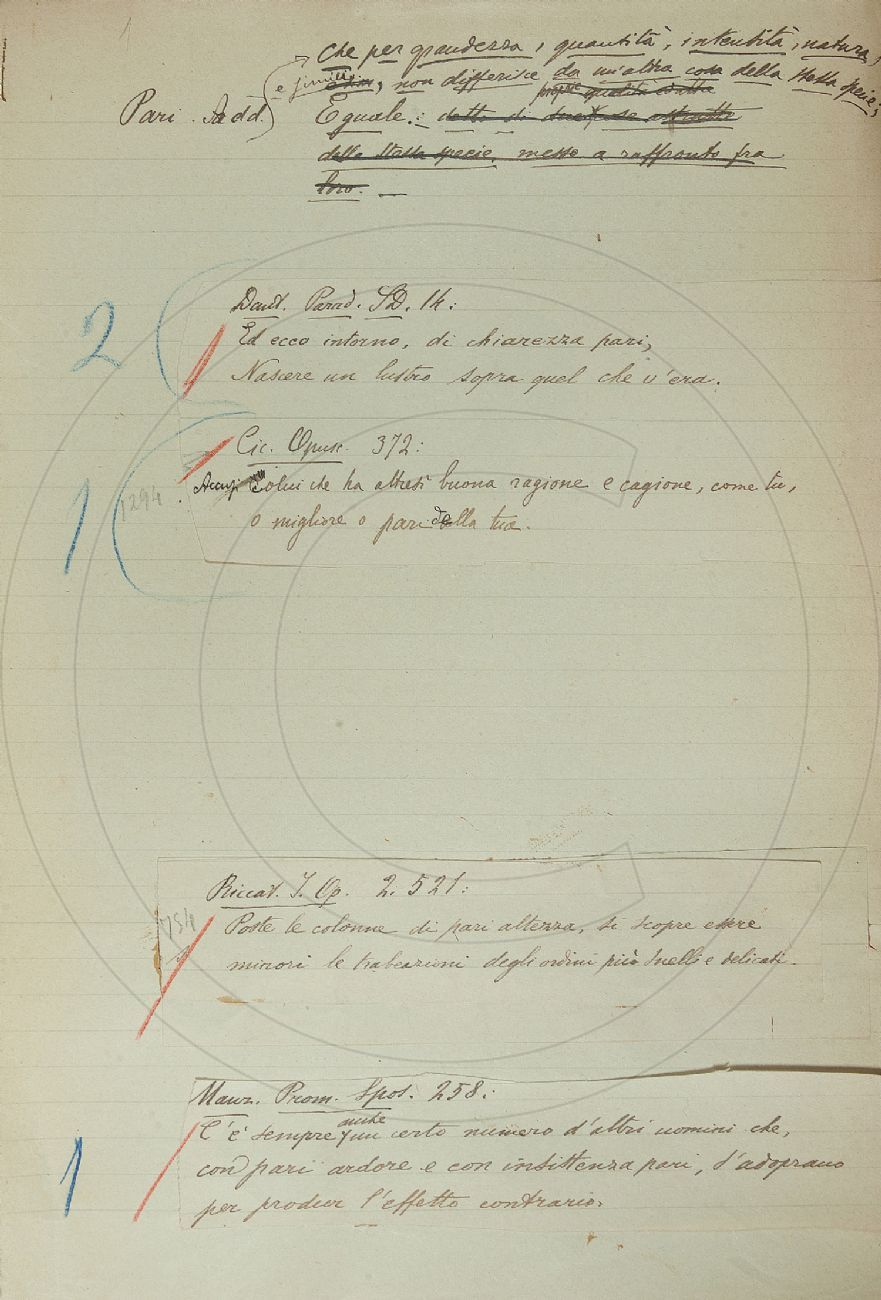 1
Che per grandezza, quantità, intensità, natura,
e simili, non differisce da un'altra cosa della stessa specie;
propr qualità
Pari. Add. Eguale: detto di due
della stessa specie, messe a raffronto fra
loro. —
2
Dant. Parad. SD. 14:
Ed ecco intorno, di chiarezza pari,
Nascere un lustro sopra quel che v'era.
Cic. Opusc. 372:
1
1294
Colui che ha altresì buona ragione e cagione, come tu,
o migliore o pari della tua.
Riccat. I. Op. 2. 521:
Poste le colonne di pari altezza, si scopre essere
minori le trabeazioni degli ordini più snelli e delicati.
Manz. Prom. Spos. 258:
C'è sempre anche un certo numero d'altri uomini che,
1
con pari ardore e con insistenza pari, s'adoprano
per produr l'effetto contrario.